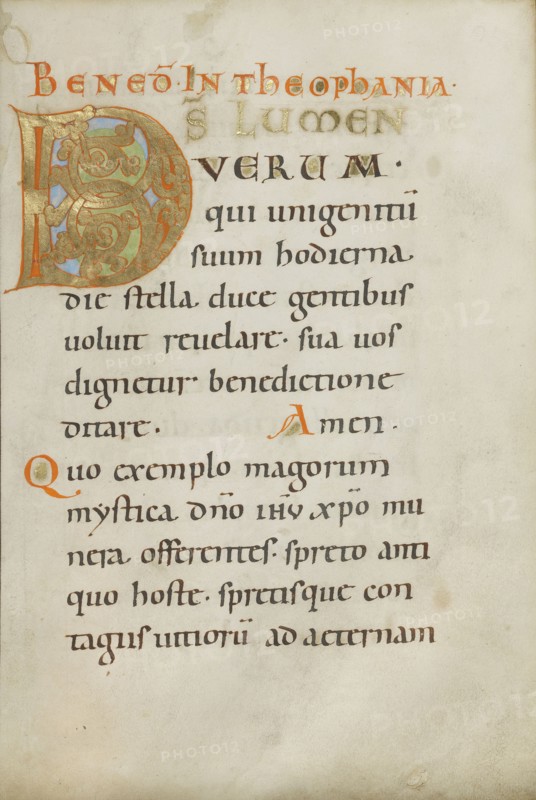 BENED̄·IN THEOPHANIA·
D̄S̄ LUMEN
VERUM·
qui unigenitū
suum hodierna
die stella duce gentibus
uoluit reuelare· sua uos
dignetur benedictione
ditare. Amen.
Quo exemplo magorum
mystica dn̄o ıhv̄ xp̄o mu
nera offerentes· spreto anti
quo hoste· spretisque con
tagiis uitiorū ad aeternam